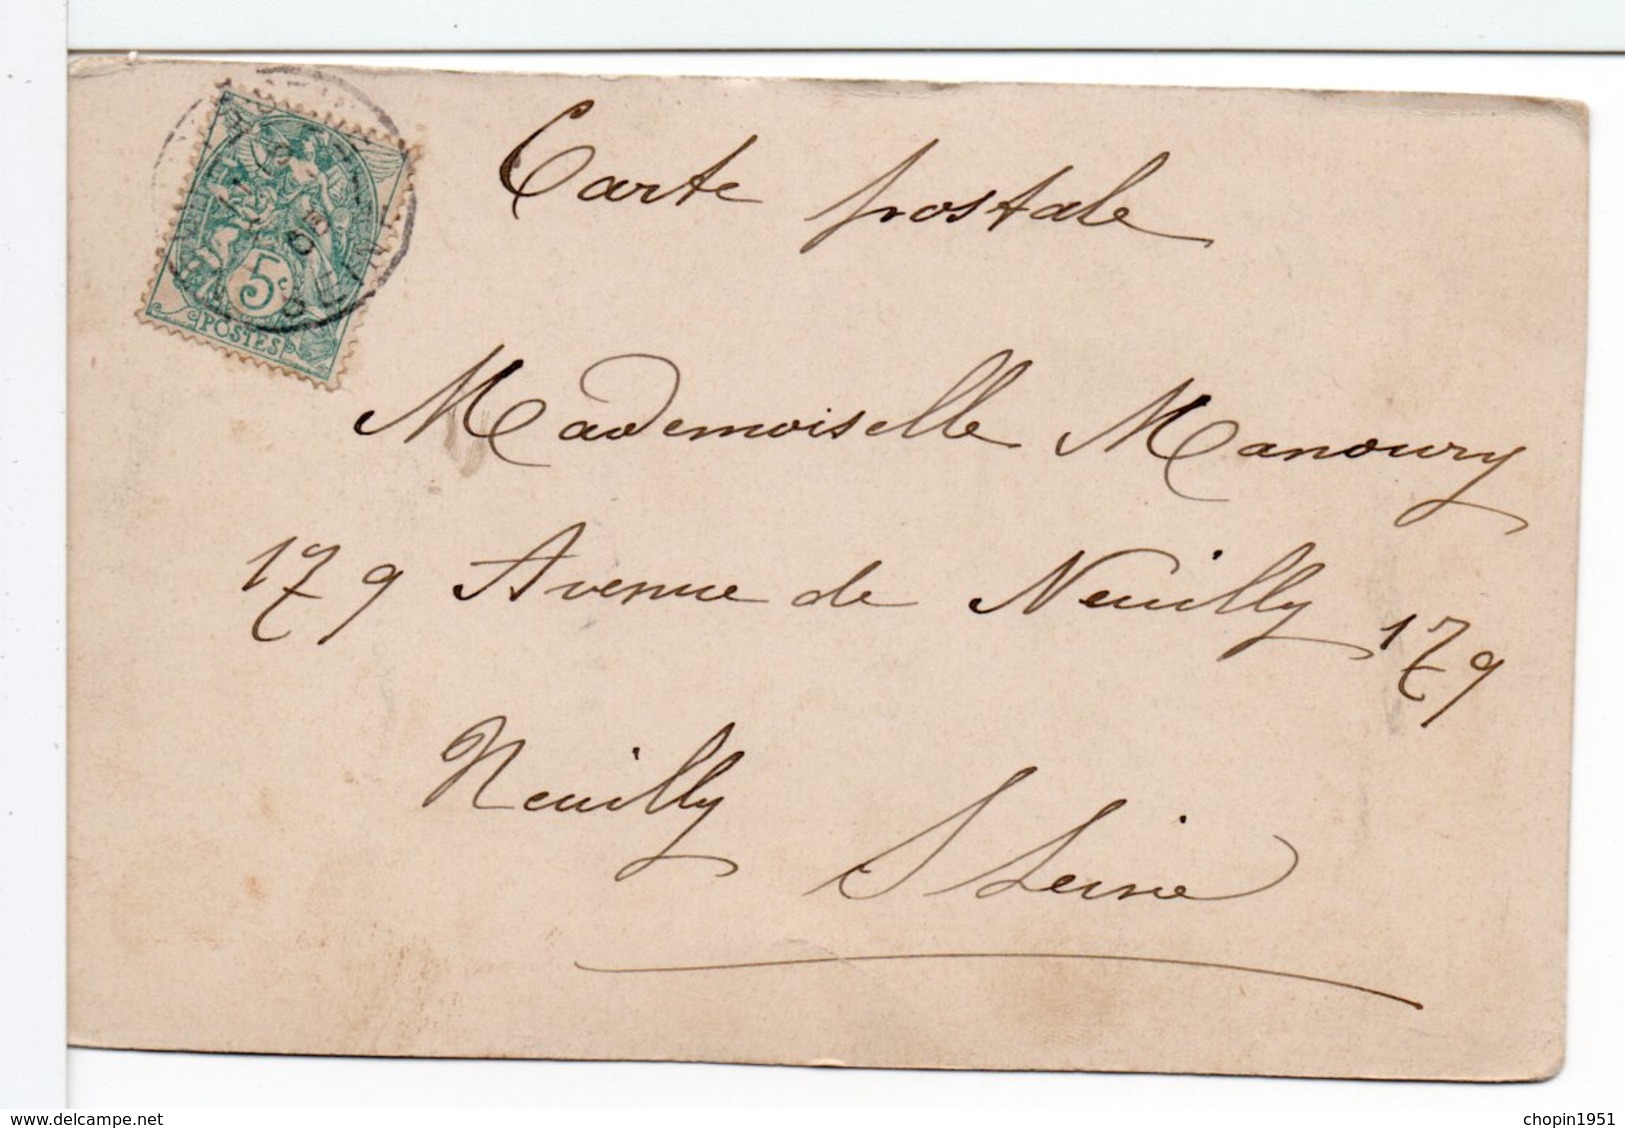 Carte postale
5c
POSTES
Mademoiselle Manoury
179 Avenue de Neuilly 179
Neuilly
S Seine
www.delcampe.net
chopin1951